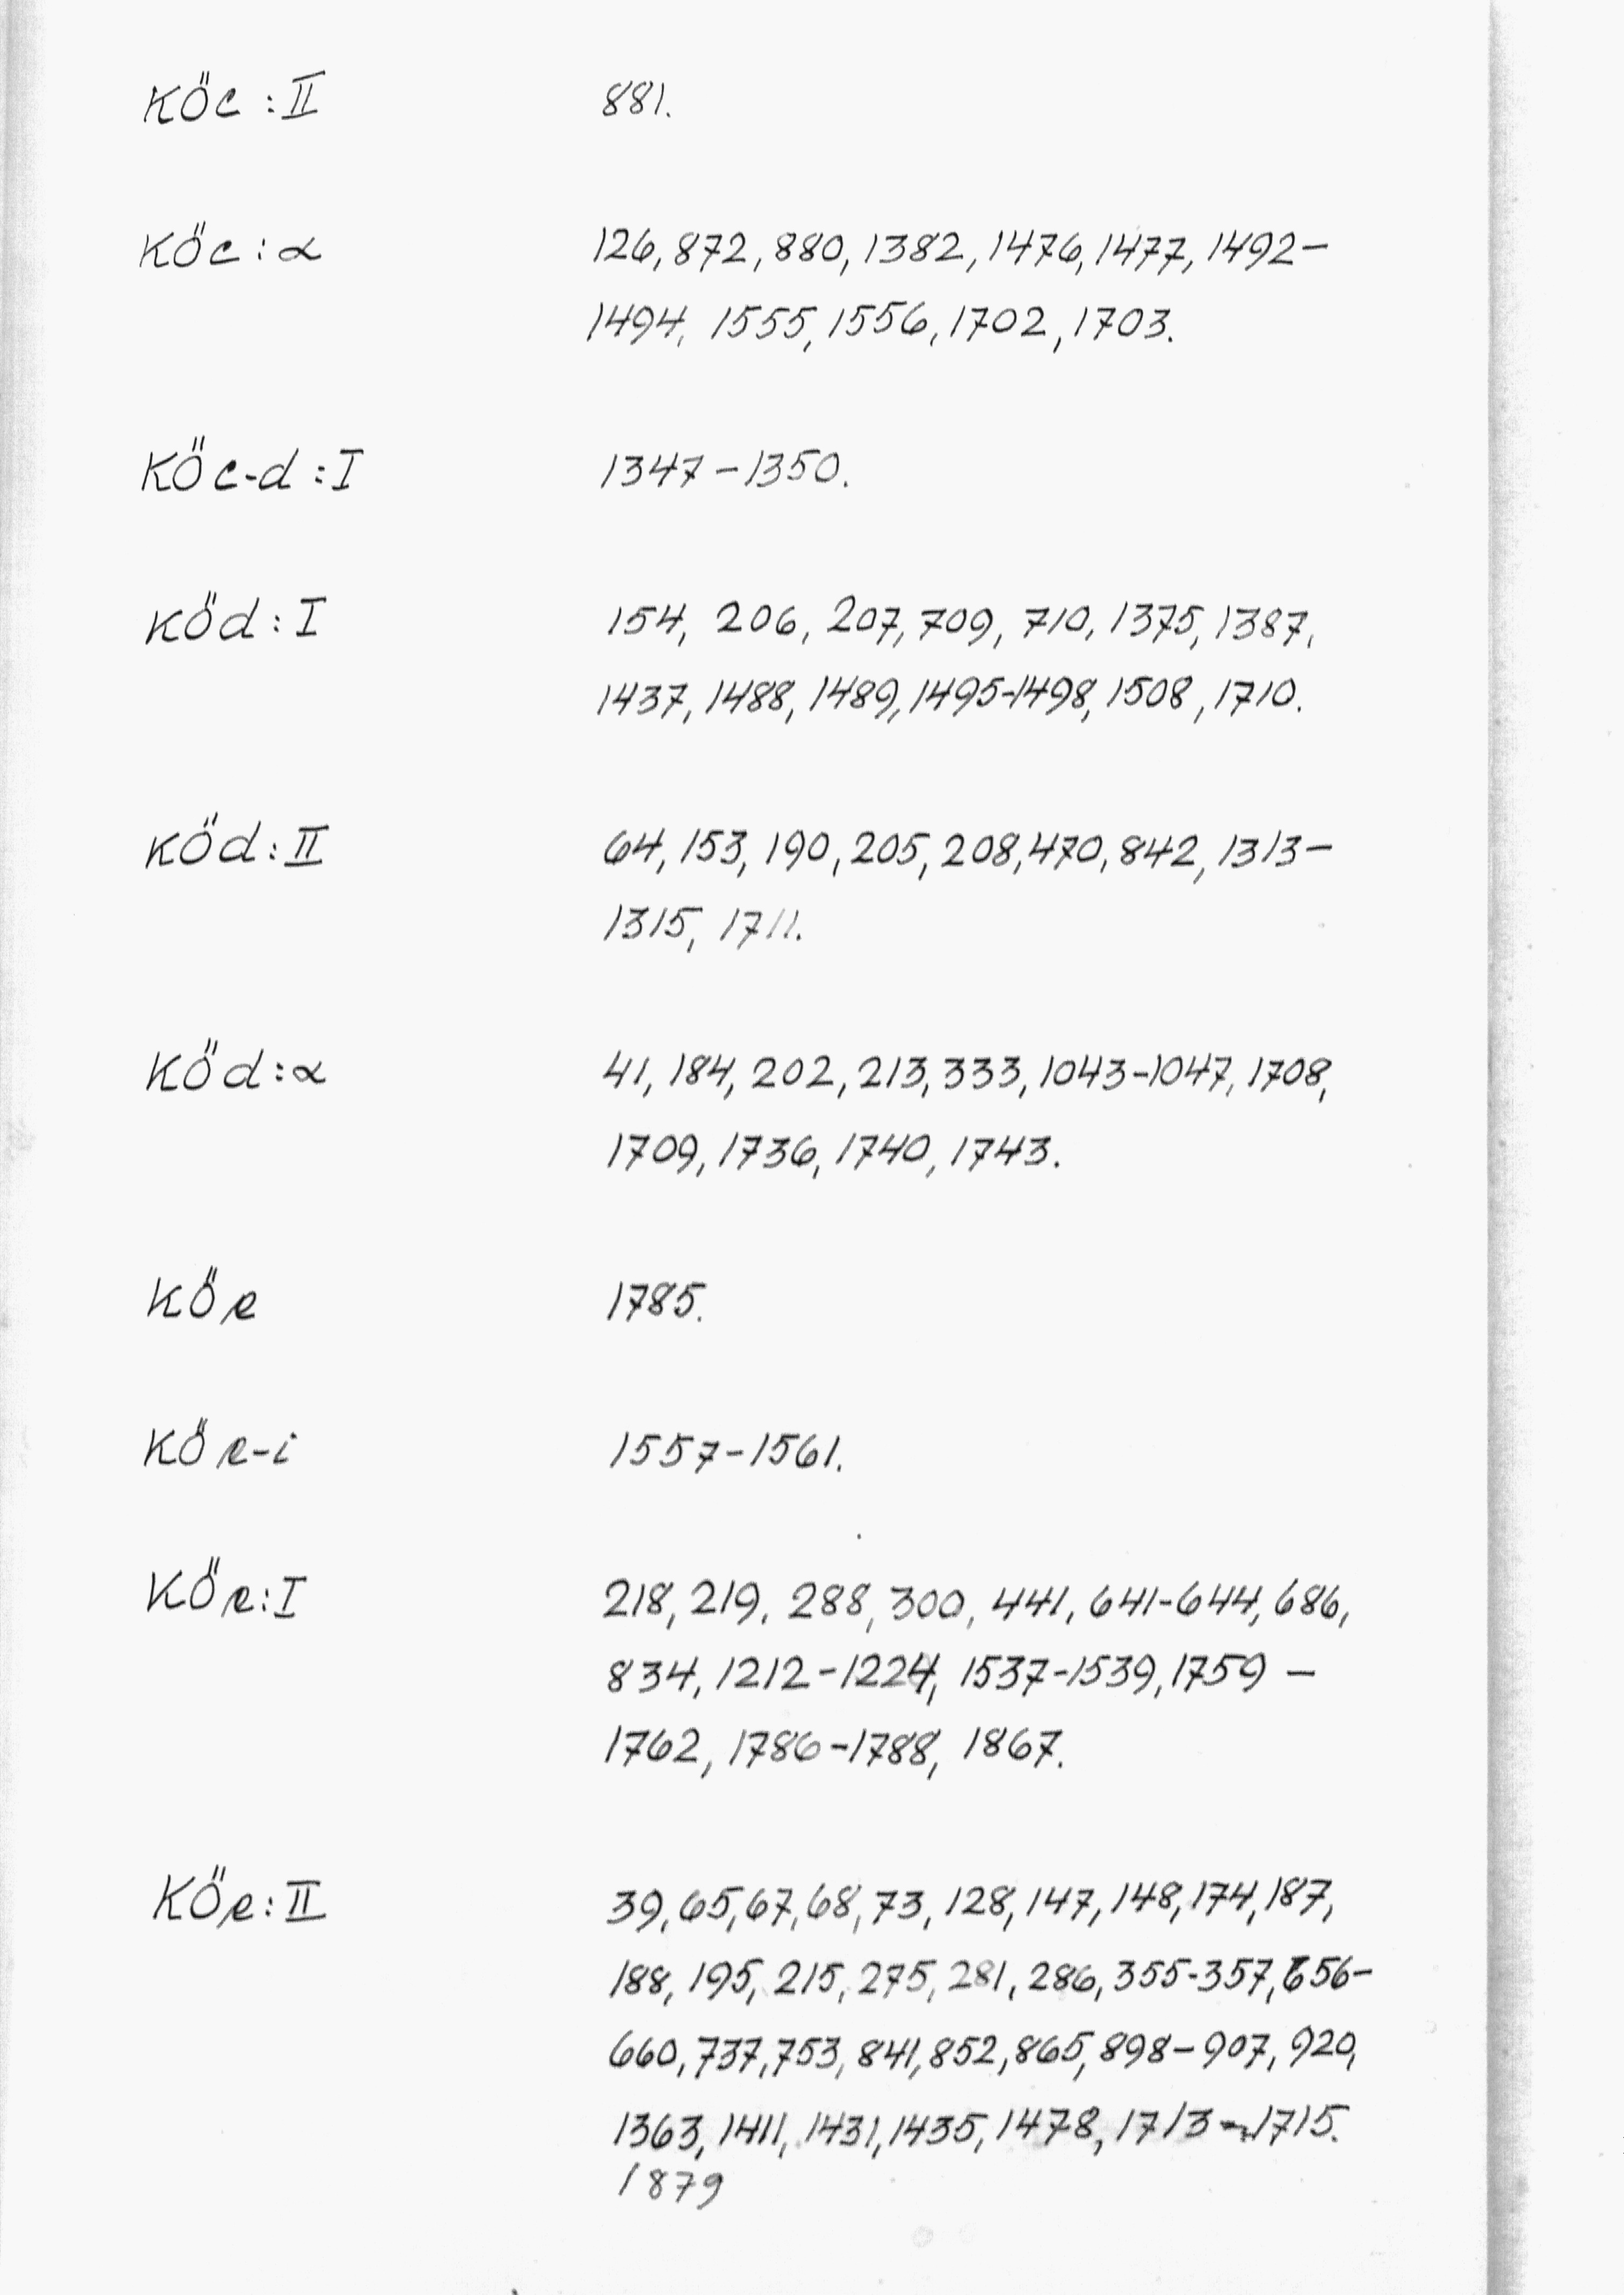 KÖc : II 881.
KÖc : α 126, 872, 880, 1382, 1476, 1477, 1492-
1494, 1555, 1556, 1702, 1703.
KÖc-d : I 1347-1350.
KÖd : I 154, 206, 207, 709, 710, 1375, 1387,
1437, 1488, 1489, 1495-1498, 1508, 1710.
KÖd : II 64, 153, 190, 205, 208, 470, 842, 1313-
1315, 1711.
KÖd : α 41, 184, 202, 213, 333, 1043-1047, 1708,
1709, 1736, 1740, 1743.
KÖe 1785.
KÖe-i 1557-1561.
KÖe : I 218, 219, 288, 300, 441, 641-644, 686,
834, 1212-1224, 1537-1539, 1759-
1762, 1786-1788, 1867.
KÖe : II 39, 65, 67, 68, 73, 128, 147, 148, 174, 187,
188, 195, 215, 275, 281, 286, 355-357, 656-
660, 737, 753, 841, 852, 865, 898-907, 920,
1363, 1411, 1431, 1435, 1478, 1713-1715.
1879